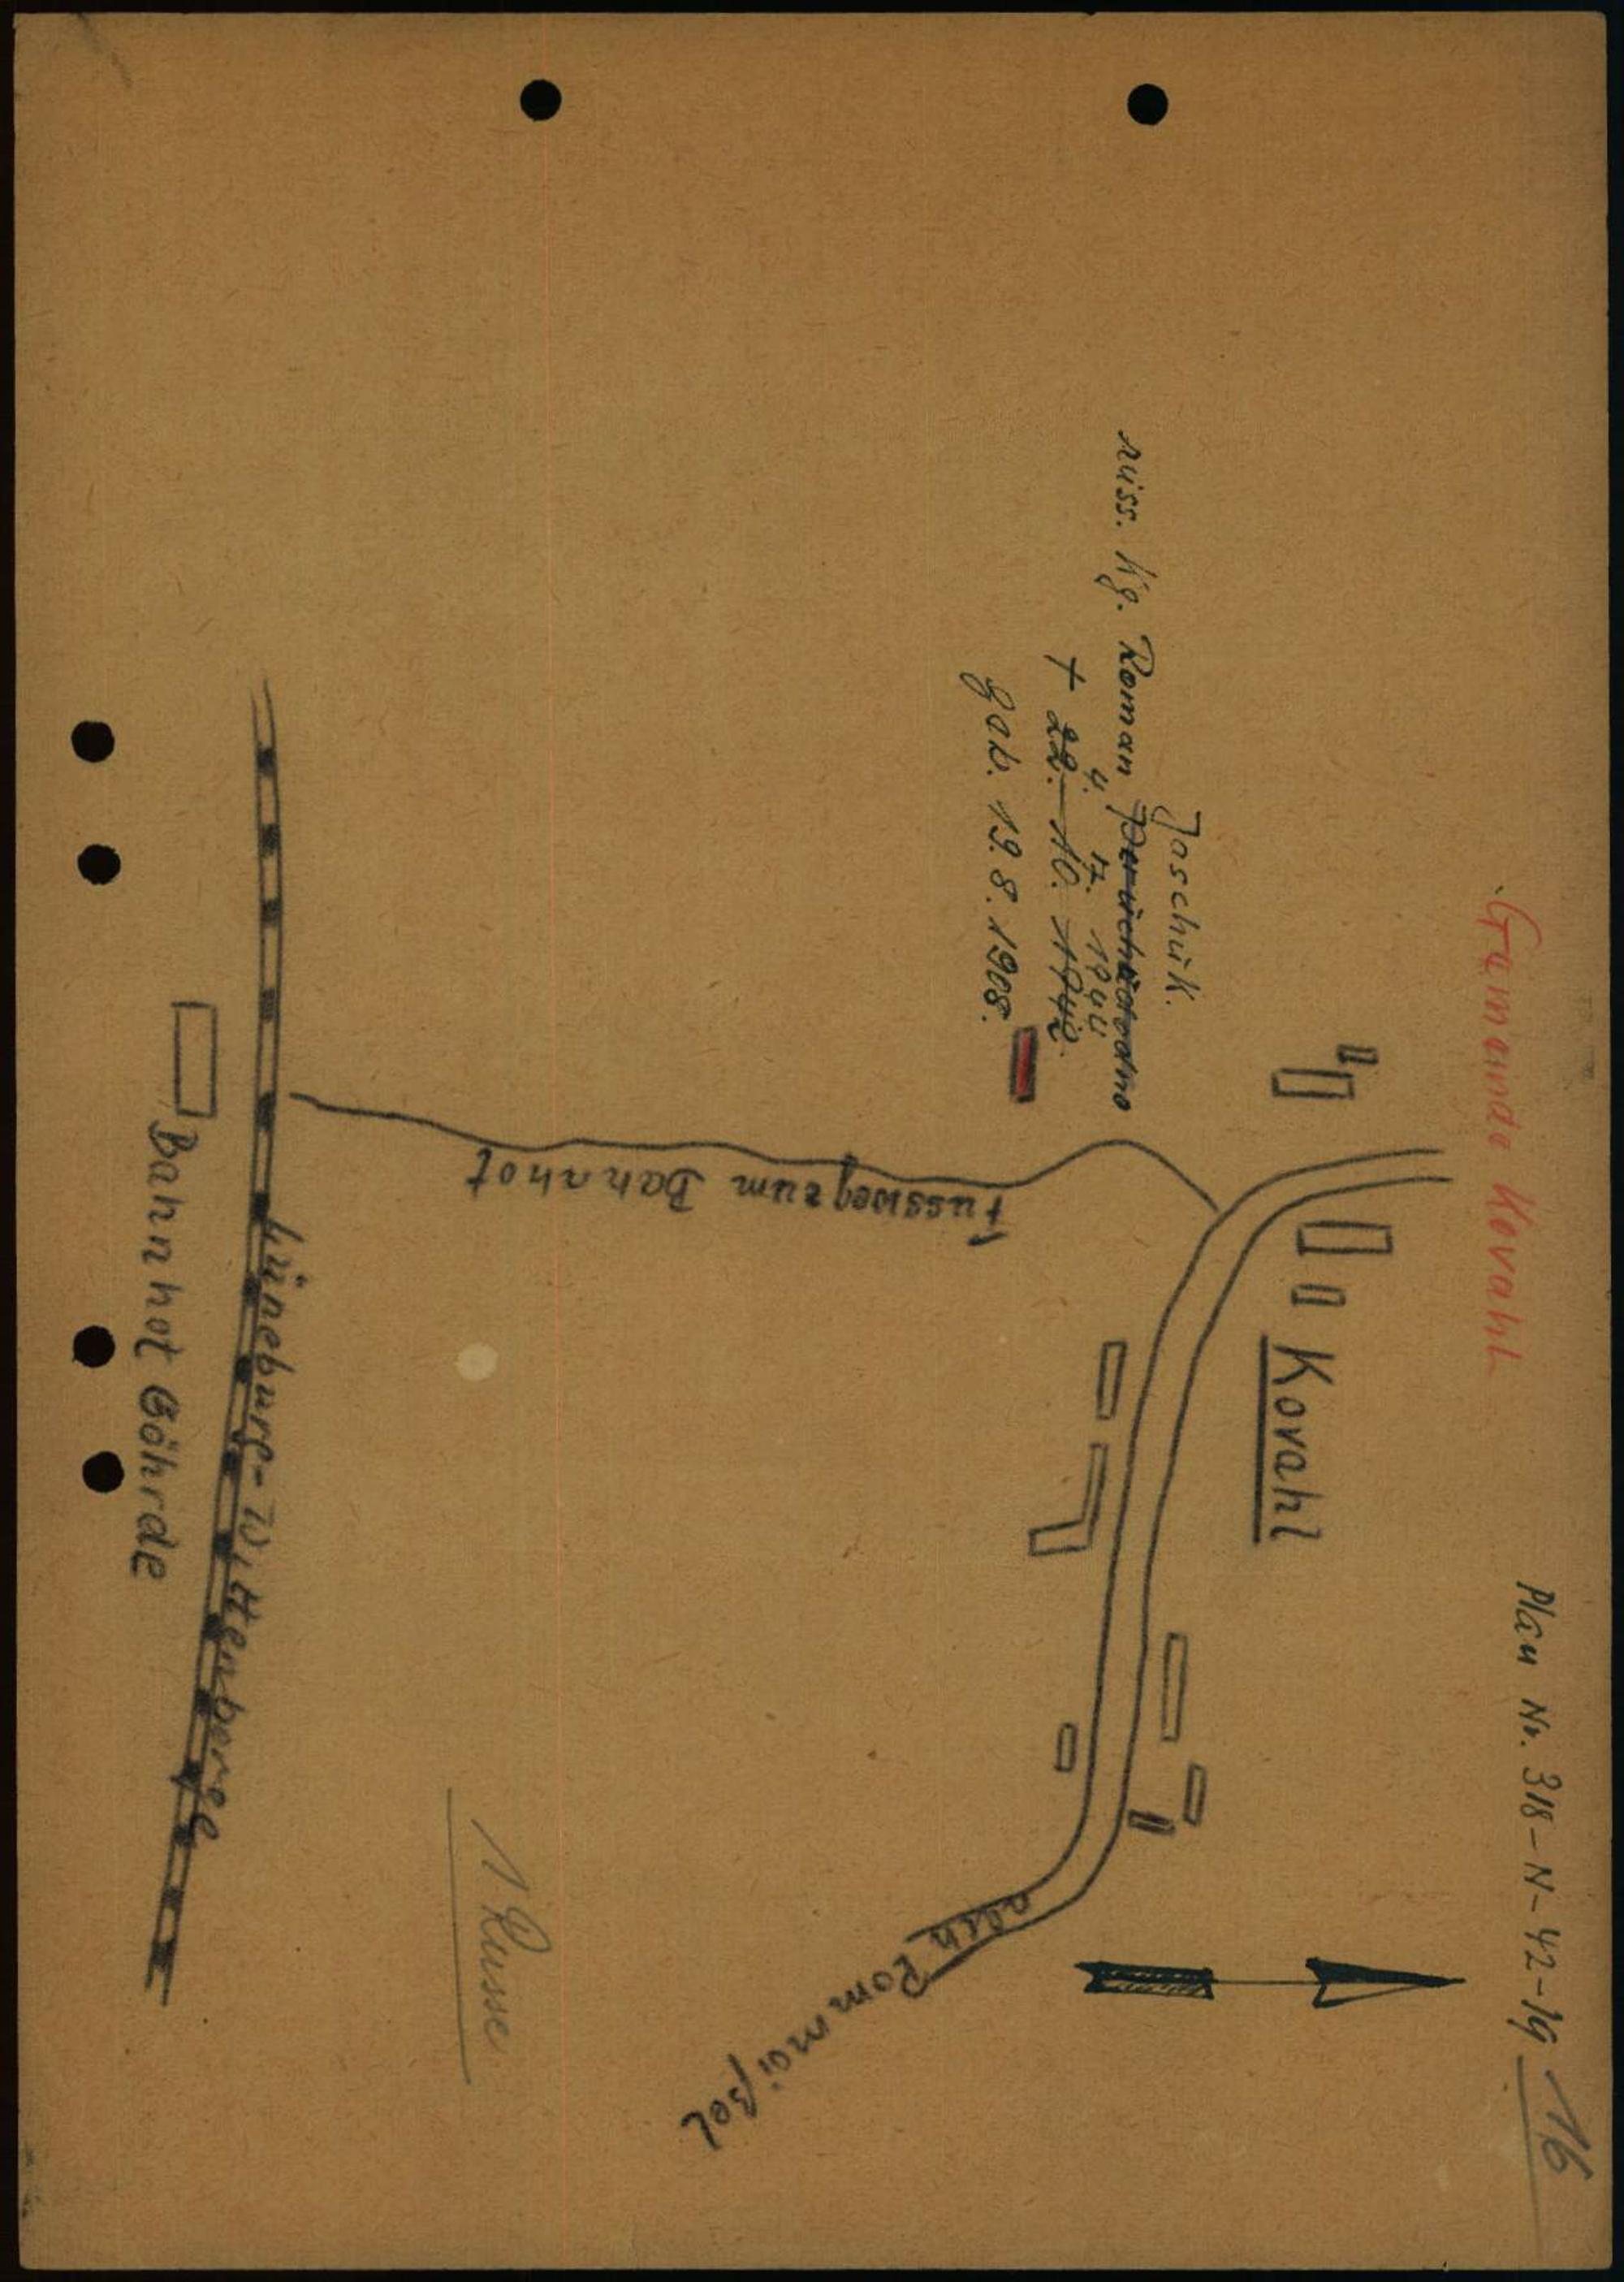 Plan Nr. 318-N-42-19 16
Gemeinde Kovahl
Kovahl
Jaschük.
russ. Kg. Roman
4. 17. 1944
+ 22. 10. 1942
geb. 19. 8. 1908.
Fussweg zum Bahnhof
nach Pommoißel
1 Russe
Lüneburg-Wittenberge
Bahnhof Göhrde